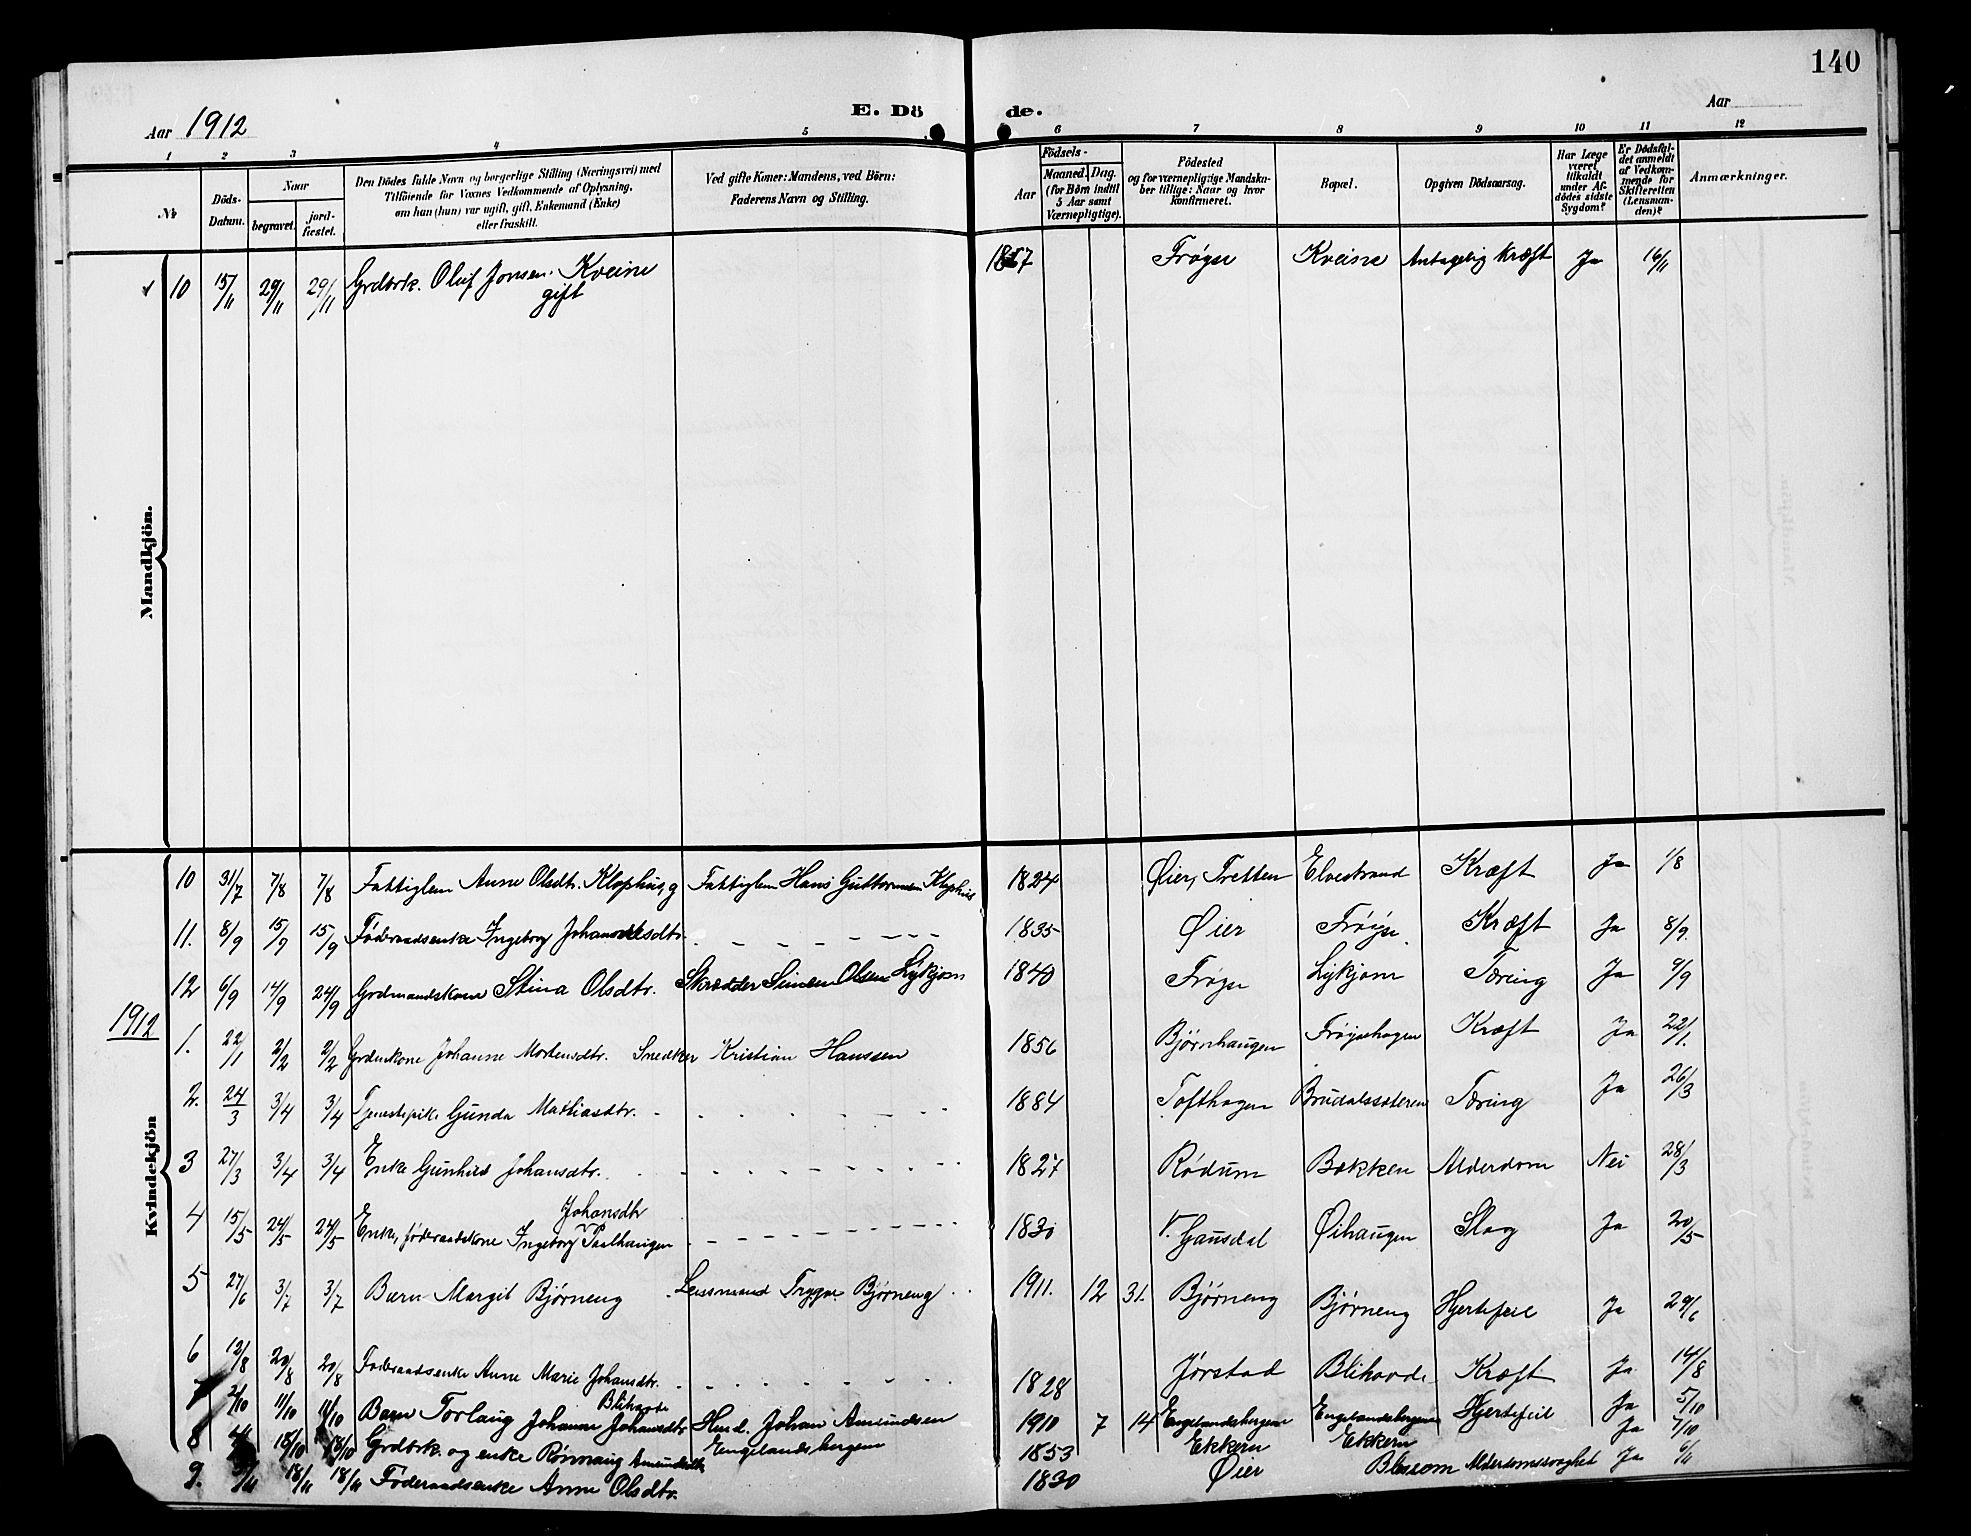 140
Aar 1912
E. Dö
de.
Aar
1 2 3 4 5 6 7 8 9 10 11 12
№
Döds-Datum.
Naar
begravet.
jord-fæstet.
Den Dödes fulde Navn og borgerlige Stilling (Næringsvei) med
Tilföiende for Voxnes Vedkommende af Oplysning,
om han (hun) var ugift, gift, Enkemand (Enke)
eller fraskilt.
Ved gifte Koner: Mandens, ved Börn:
Faderens Navn og Stilling.
Födsels-
Aar
Maaned. Dag.
(for Börn indtil
5 Aar samt
Værnepligtige).
Födested
og for værnepligtige Mandska-
ber tillige: Naar og hvor
konfirmeret.
Bopæl.
Opgiven Dödsaarsag.
Har Læge
været
tilkaldt
under Af-
dödes sidste
Sygdom?
Er Dödsfal-
det anmeldt
af Vedkom-
mende for
Skifteretten
(Lensman-
den)?
Anmærkninger.
Mandkjön.
10 15/11 29/11 29/11 Grdbrk. Oluf Jonsen Kveine 18 7 Frøyse Kveine Antagelig Kræft Ja 16/11
gift
Kvindekjön
10 31/7 7/8 7/8 Fattiglem Anne Olsdtr. Klophugg Fattiglem Hans Guttormsen 1824 Øier, Tretten Elvestrand Kræft Ja 1/8
11. 8/9 15/9 15/9 Føderaadsenke Ingeborg Johannesdtr. 1835 Øier Frøyse Kræft Ja 8/9
12 6/9 14/9 24/9 Grdmandskone Stina Olsdtr. Skrædder Simen Olsen Lykjom 1840 Frøyse Lykjom Tæring Ja 9/9
1912
1. 22/1 2/2 2/2 Johanne Mortensdtr. Snedker Kristian Hanssen 1856 Bjørnhaugen Frøysehagen Kræft Ja 22/1.
2. 24/3 3/4 3/4 Tjenestepike Gunda Mathiasdtr. 1884 Tofthagen Brudalssæteren Tæring Ja 26/3
3 27/3 3/4 3/4 Enke Gunhild Johansdtr. 1827 Rødum Bækken Alderdom Nei 28/3
Johansdtr
4 15/5 24/5 24/5 Enke, føderaadskone Ingeborg Paalhaugen 1830 V. Gausdal Øihaugen Slag Ja 20/5
5 27/6 3/7 3/7 Barn Margit Bjørneng Lensmand Trygve Bjørneng 1911. 12 31. Bjørneng Bjørneng Hjertefeil Ja 29/6
6 12/8 20/8 20/8 Føderaadsenke Anne Marie Johansdtr. 1828 Jørstad Blihovde Kræft Ja 14/8
Blihovde
7 2/10 11/10 11/10 Barn Torlaug Johanne Johansdtr Johan Amundsen 1910 7 14 Engelandsbergene Engelandsbergene Hjertefeil Ja 5/10
Engelandsbergene
8 18/10 18/10 Grdbrk. og enke Rønnaug Amundsdtr 1853 Ekkern Ekkern Ja 7/10
9. 18/11 18/11 Føderaadsenke Anne Olsdtr. 1830 Øier Blessom Alderdomssvaghet Ja 6/11